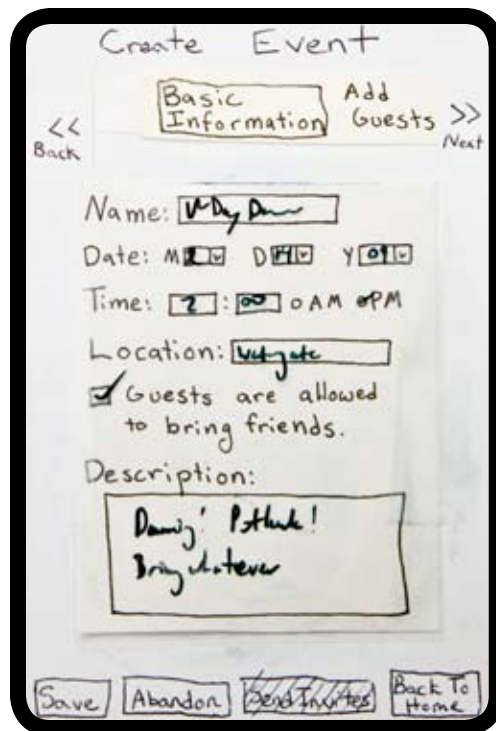 Create Event
Basic Information
Add Guests
<< Back
>> Next
Name: V-Day Dance
Date: M 2 D 14 Y 09
Time: 2 : 00 o AM o PM
Location: Watergate
Guests are allowed
to bring friends.
Description:
Dancing! Potluck!
Bring whatever
Save Abandon Send Invites Back To Home